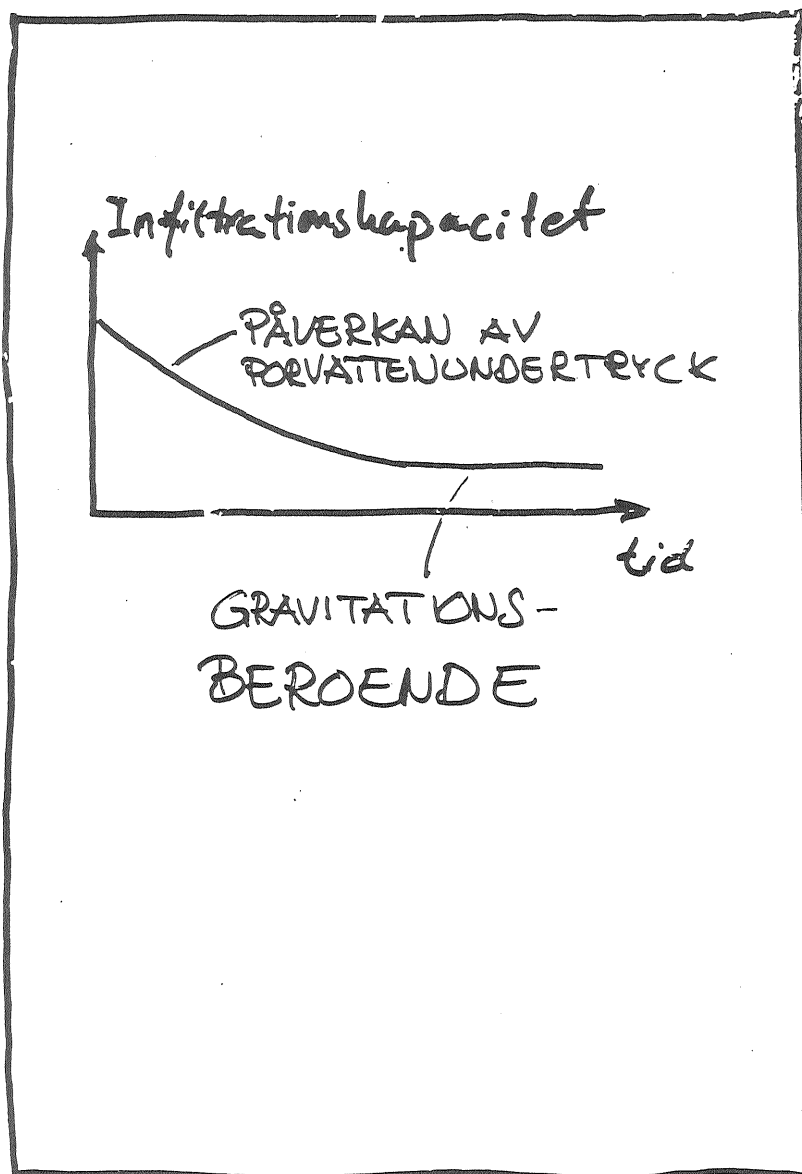 Infiltrationskapacitet
PÅVERKAN AV
PORVATTENUNDERTRYCK
tid
GRAVITATIONS-
BEROENDE